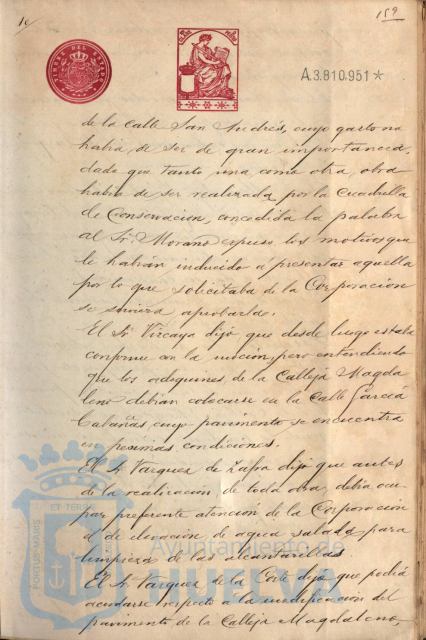 159
A.3.810.951*
de la calle San Andrés, cuyo gasto no
habia de ser de gran importancia,
dado que tanto una como otra obra
habia de ser realizada por la Cuadrilla
de Conservacion, concedida la palabra
al Sr. Moraño expuso los motivos que
le habian inducido á presentar aquella
por lo que solicitaba de la Corporacion
se sirviera aprobarla.
El Sr. Vizcaya dijo que desde luego estaba
conforme con la mocion, pero entendiendo
que los adoquines de la Calleja Magda
lena debian colocarse en la Calle Garcia
Cabañas cuyo pavimento se encuentra
en pesimas condiciones.
El Sr Vazquez de Zafra dijo que antes
de la realizacion de toda obra, debia ocu
par preferente atencion de la Corporacion
el de elevacion de agua salada para
limpieza de las alcantarillas.
El Sr Vazquez de la Corte dijo que podia
acordarse respecto a la modificacion del
pavimento de la Calleja Magdalena,
PORTUS MARIS
ET TERRÆ
Ayuntamiento de
HUELVA